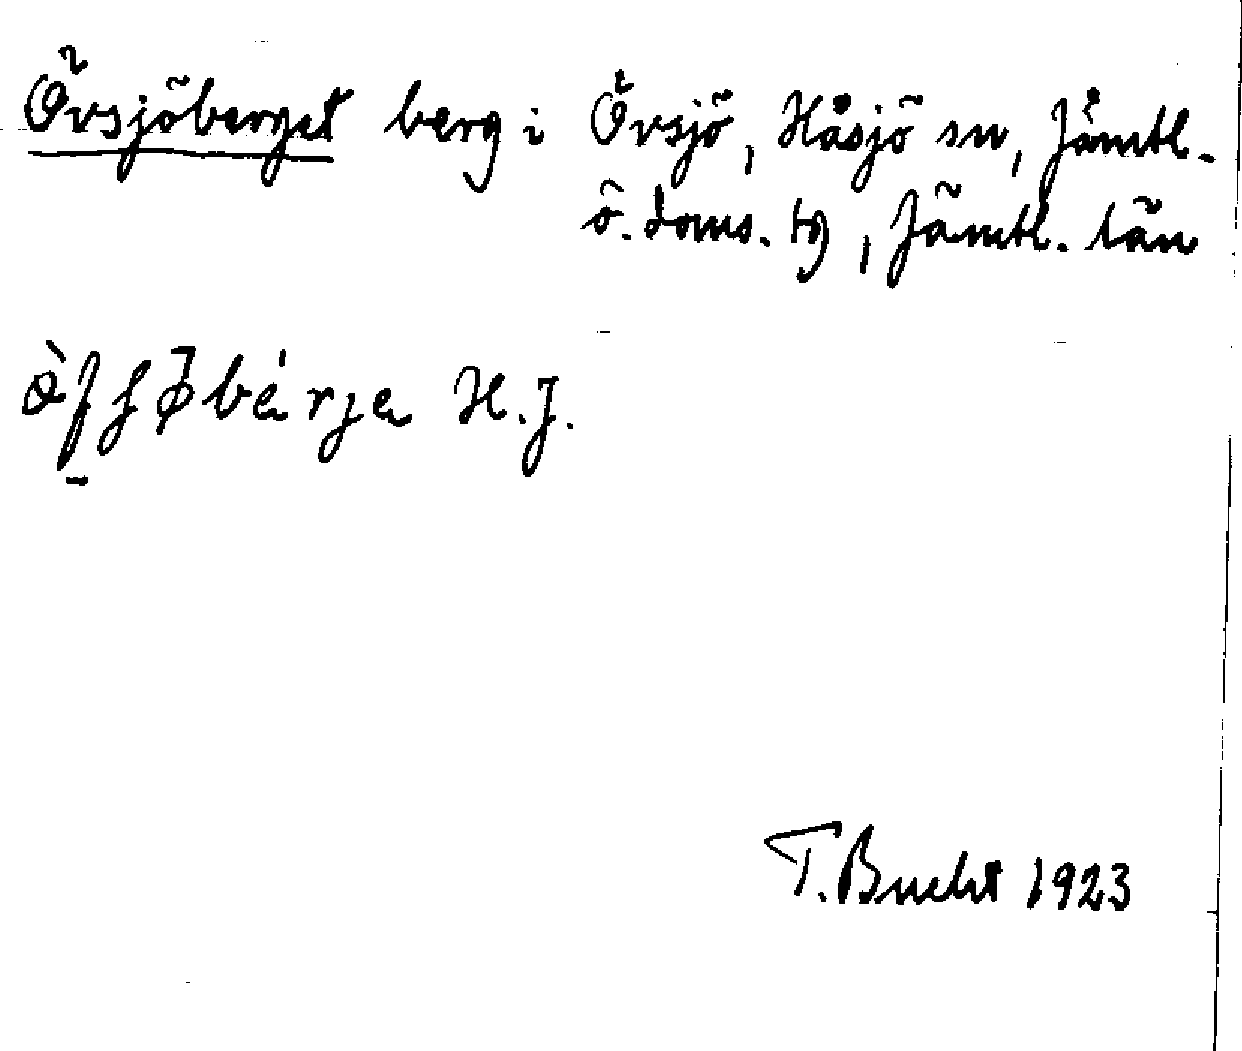 Övsjöberget berg i Övsjö, Håsjö sn, Jämtl.
ö. doms. tg, Jämtl. län
H.J.
T. Bucht 1923